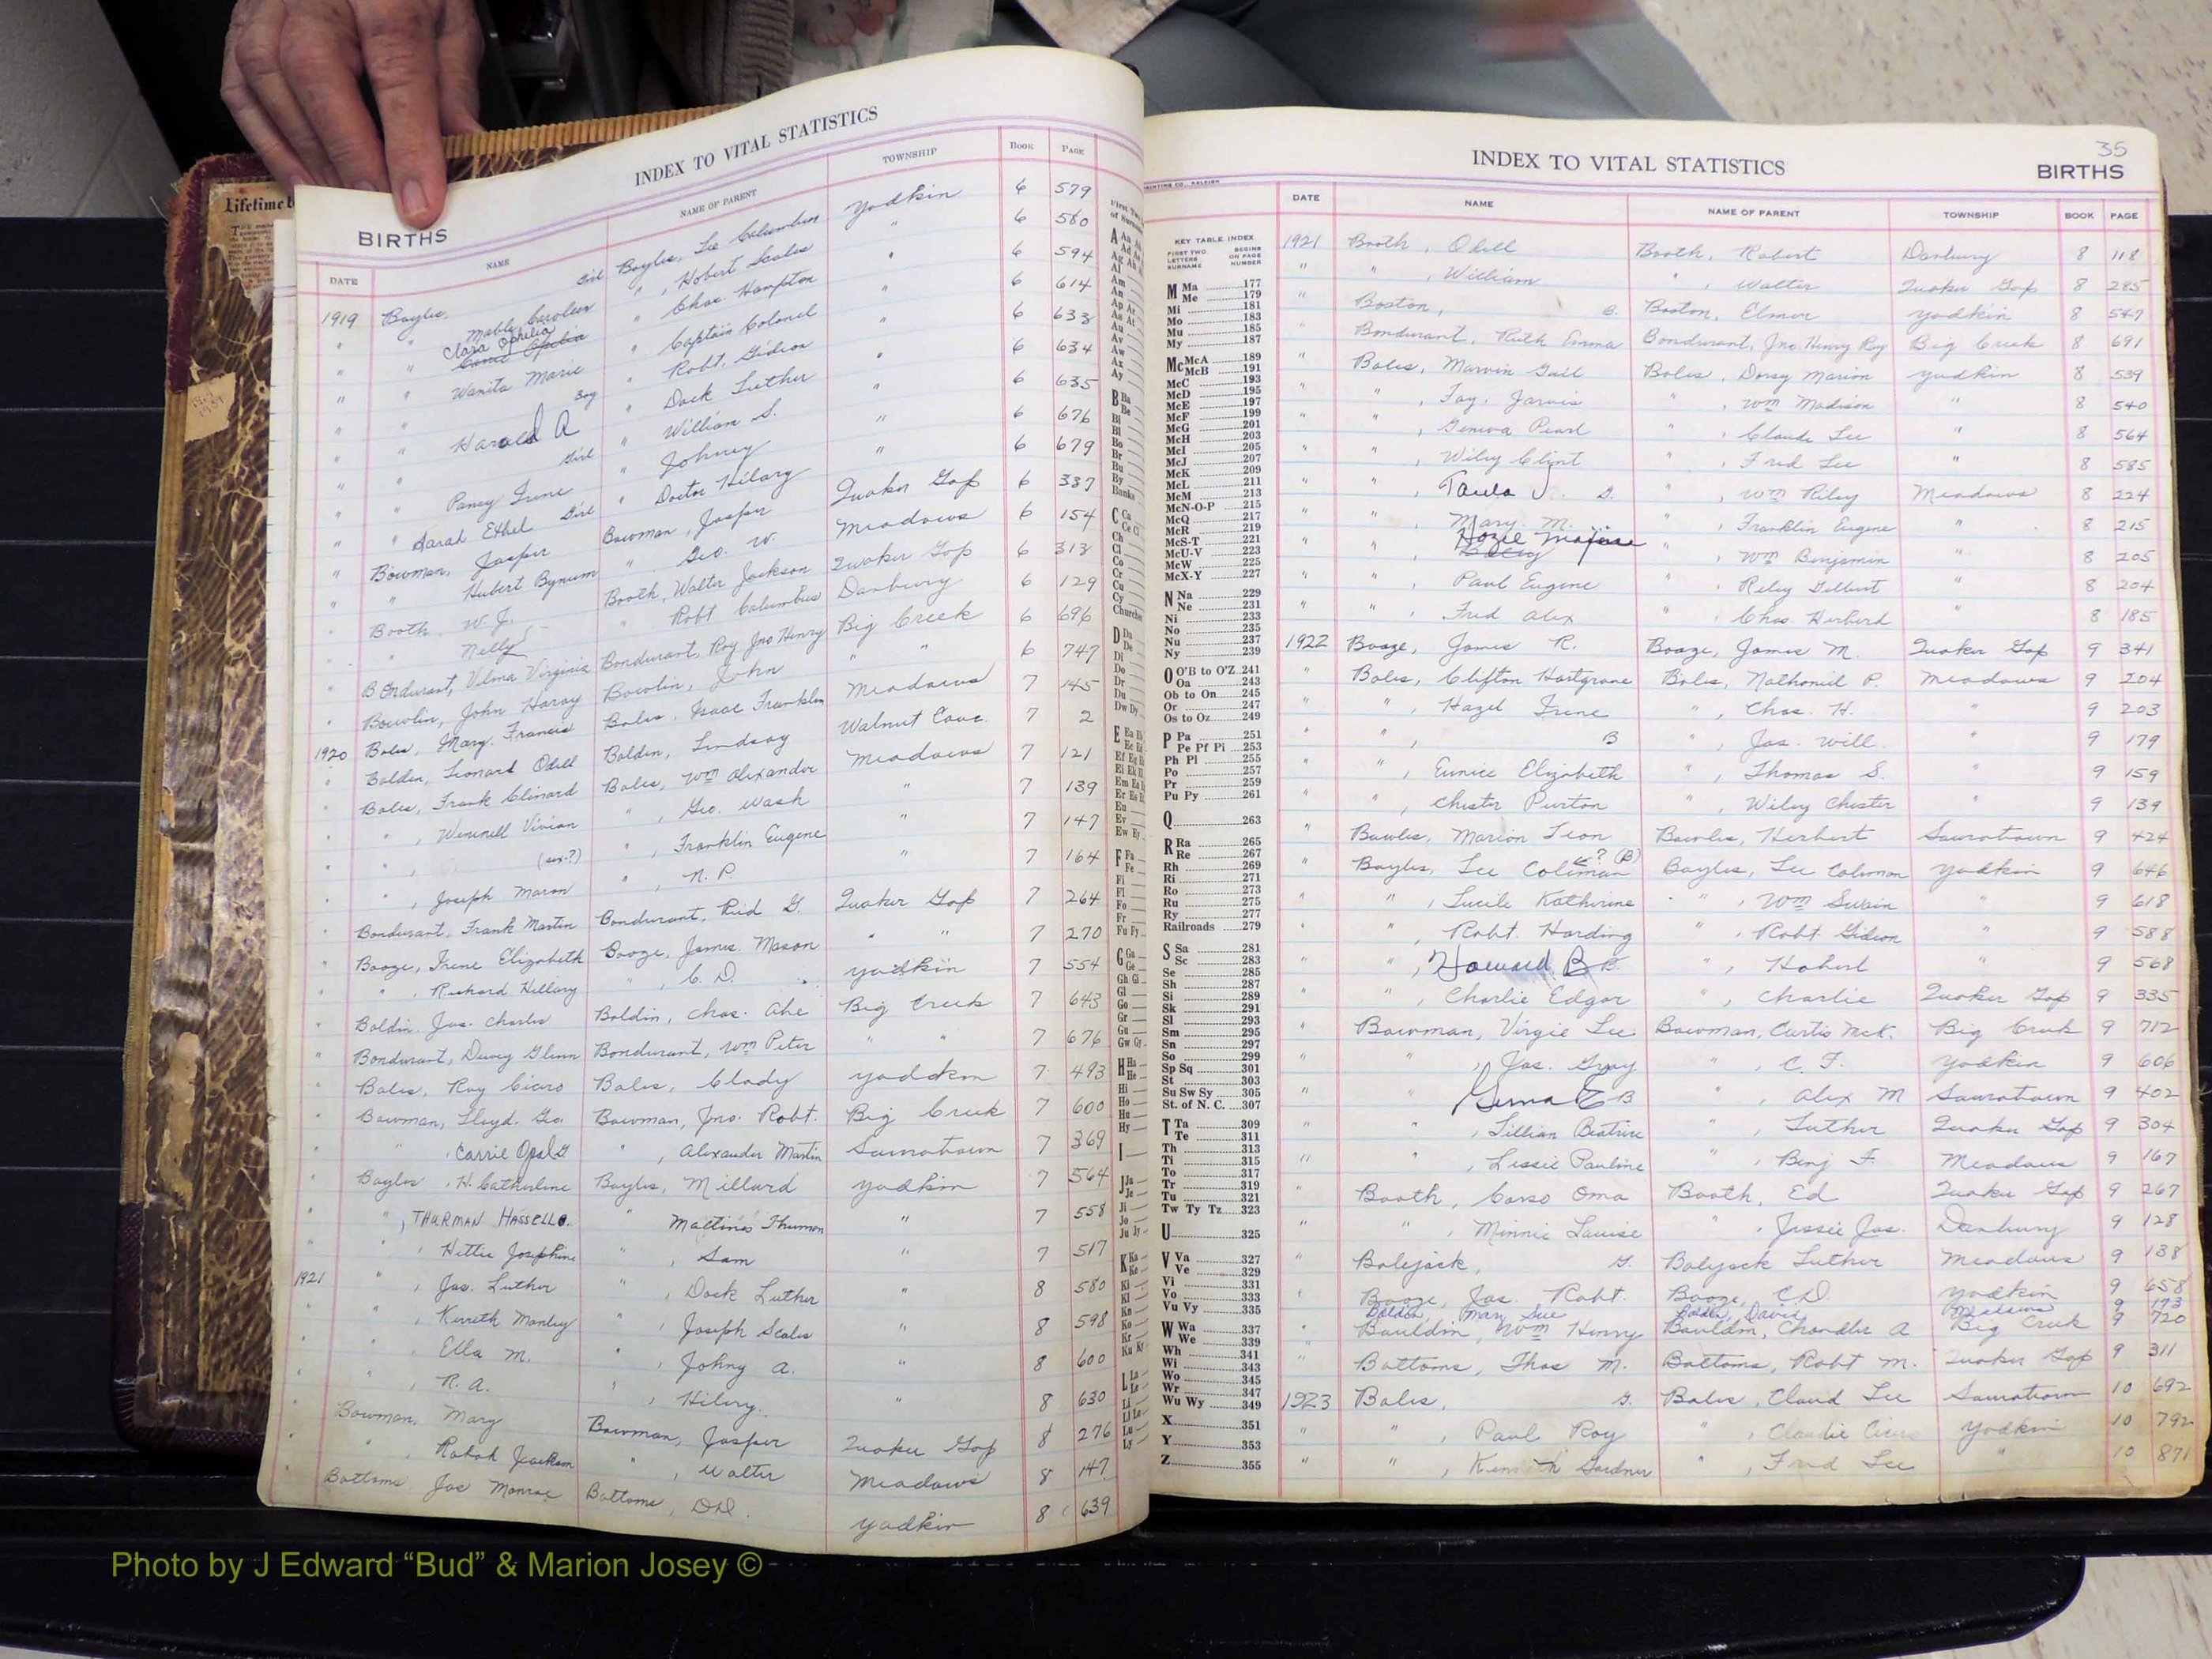 Lifetime
BIRTHS
INDEX TO VITAL STATISTICS
DATE NAME NAME OF PARENT TOWNSHIP BOOK PAGE
1919 Bayles, Girl Bayles, Lee Columbus Yadkin 6 579
" " Mable Caroleen " , Hobert Scales " 6 580
Clara Ophelia
" " " Chas. Hampton " 6 594
" " Wanita Marie " Captain Colonel " 6 614
" " Boy " Robt. Gideon " 6 633
" " Harold A " Dock Luther " 6 634
" " Girl " William S. " 6 635
" " Pansy Irene " Johney " 6 676
" " Sarah Ethel Girl " Doctor Hilary " 6 679
" Bowman, Jasper Bowman, Jasper Quaker Gap 6 337
" " Hubert Bynum " Geo. W. Meadows 6 154
" Booth W. J. Booth, Walter Jackson Quaker Gap 6 313
" " Nelly " Robt Columbus Danbury 6 129
" Bondurant, Velma Virginia Bondurant, Roy Jno Henry Big Creek 6 696
" Bowlin, John Harvy Bowlin, John " " 6 747
1920 Boles, Mary Francis Boles, Isaac Franklin Meadows 7 145
" Bolden, Leonard Odell Bolden, Lindsay Walnut Cove 7 2
" Boles, Frank Clinard Boles, Wm Alexander Meadows 7 121
" " , Vivian " , Geo. Wash " 7 139
" " , (sex-?) " , Franklin Eugene " 7 147
" " , Joseph Maron " , N. P. " 7 164
" Bondurant, Frank Martin Bondurant, Reid G. Quaker Gap 7 264
" Booze, Irene Elizabeth Booze, James Mason " " 7 270
" " , Richard Hillary " , C. D. Yadkin 7 554
" Boldin, Jas. Charles Boldin, Chas. Abe Big Creek 7 643
" Bondurant, Dewey Glenn Bondurant, Wm Peter " " 7 676
" Boles, Roy Cicero Boles, Clady Yadkin 7 493
" Bowman, Lloyd Geo. Bowman, Jno. Robt. Big Creek 7 600
" " , Carrie Opal G " , Alexander Martin Sauratown 7 369
" Bayles, H. Catherine Bayles, Millard Yadkin 7 564
" " , THURMAN HASSELL " Thurmon " 7 558
" " , Hettie Josephine " , Sam " 7 517
1921 " , Jas. Luther " , Dock Luther " 8 580
" " , Kenneth Manley " , Joseph Scales " 8 598
" " , Ella M. " , Johny A. " 8 600
" " , R. A. " , Hilery. " 8 630
" Bowman, Mary Bowman, Jasper Quaker Gap 8 276
" " , Ralph Jackson " , Walter Meadows 8 147
" Bottoms Jas Monroe Bottoms, Yadkin 8 639
35
INDEX TO VITAL STATISTICS
BIRTHS
DATE NAME NAME OF PARENT TOWNSHIP BOOK PAGE
1921 Booth, Odell Booth, Robert Danbury 8 118
" " , William " , Walter Quaker Gap 8 285
" Boston, B. Boston, Elmer Yadkin 8 547
" Bondurant, Ruth Emma Bondurant, Jno. Henry Roy Big Creek 8 691
" Boles, Marvin Gail Boles, Dorsy Marion Yadkin 8 539
" " , Fay Jarvis " , Wm Madison " 8 540
" " , Geneva Pearl " , Claude Lee " 8 564
" " , Wiley Clint " , Fred Lee " 8 585
" " , Paula G. " , Wm Riley Meadows 8 224
" " , Mary M. " , Franklin Eugene " 8 215
" " , Hozie " , Wm Benjamin " 8 205
" " , Paul Eugene " , Riley Gilbert " 8 204
" " , Fred Alex " , Chas. Herbert 8 185
1922 Booze, James R. Booze, James M. Quaker Gap 9 341
" Boles, Clifton Hartgrove Boles, Nathaniel P. Meadows 9 204
" " , Hazel Irene " , Chas. H. " 9 203
" " , B " , Jas. Will. " 9 179
" " , Eunice Elizabeth " , Thomas S. " 9 159
" " , Chester Purton " , Wiley Chester " 9 139
" Bowles, Marion Leon Bowles, Herbert Sauratown 9 424
" Bayles, Lee Coleman ? (B) Bayles, Lee Colemon Yadkin 9 646
" " , Lucile Katherine " , Wm Swain " 9 618
" " , Robt. Harding " , Robt. Gideon " 9 588
" " , Howard B B. " , Hobert " 9 568
" " , Charlie Edgar " , Charlie Quaker Gap 9 335
" Bowman, Virgie Lee Bowman, Curtis McK. Big Creek 9 712
" " , Jas. Gray " , C. F. Yadkin 9 606
" " B " , Alex M Sauratown 9 402
" " , Lillian Beatrice " , Luther Quaker Gap 9 304
" " , Lessie Pauline " , Benj F. Meadows 9 167
" Booth, Carso Oma Booth, Ed Quaker Gap 9 267
" " , Minnie Louise " , Jessie Jas. Danbury 9 128
" Bolejack, G. Bolejack Luther Meadows 9 138
" Booze, Jas. Robt. Booze, C.D. Yadkin 9 658
Bolden, Mary Sue Bolden, David Meadows 9 173
" Bauldin, Wm Henry Bauldin, Chandler A Big Creek 9 720
" Bottoms, Thos M. Bottoms, Robt M. Quaker Gap 9 311
1923 Boles, G. Boles, Claud Lee Sauratown 10 692
" " , Paul Roy " , Claudie Yadkin 10 792
" " , Kenneth Gardner " , Fred Lee " 10 871
KEY TABLE INDEX
FIRST TWO LETTERS SURNAME BEGINS ON PAGE NUMBER
M Ma 177
Me 179
Mi 181
Mo 183
Mu 185
My 187
Mc McA 189
McB 191
McC 193
McD 195
McE 197
McF 199
McG 201
McH 203
McI 205
McJ 207
McK 209
McL 211
McM 213
McN-O-P 215
McQ 217
McR 219
McS-T 221
McU-V 223
McW 225
McX-Y 227
N Na 229
Ne 231
Ni 233
No 235
Nu 237
Ny 239
O O'B to O'Z 241
Oa 243
Ob to On 245
Or 247
Os to Oz 249
P Pa 251
Pe Pf Pi 253
Ph Pl 255
Po 257
Pr 259
Pu Py 261
Q 263
R Ra 265
Re 267
Rh 269
Ri 271
Ro 273
Ru 275
Ry 277
Railroads 279
S Sa 281
Sc 283
Se 285
Sh 287
Si 289
Sk 291
Sl 293
Sm 295
Sn 297
So 299
Sp Sq 301
St 303
Su Sw Sy 305
St. of N. C. 307
T Ta 309
Te 311
Th 313
Ti 315
To 317
Tr 319
Tu 321
Tw Ty Tz 323
U 325
V Va 327
Ve 329
Vi 331
Vo 333
Vu Vy 335
W Wa 337
We 339
Wh 341
Wi 343
Wo 345
Wr 347
Wu Wy 349
X 351
Y 353
Z 355
Photo by J Edward “Bud” & Marion Josey ©